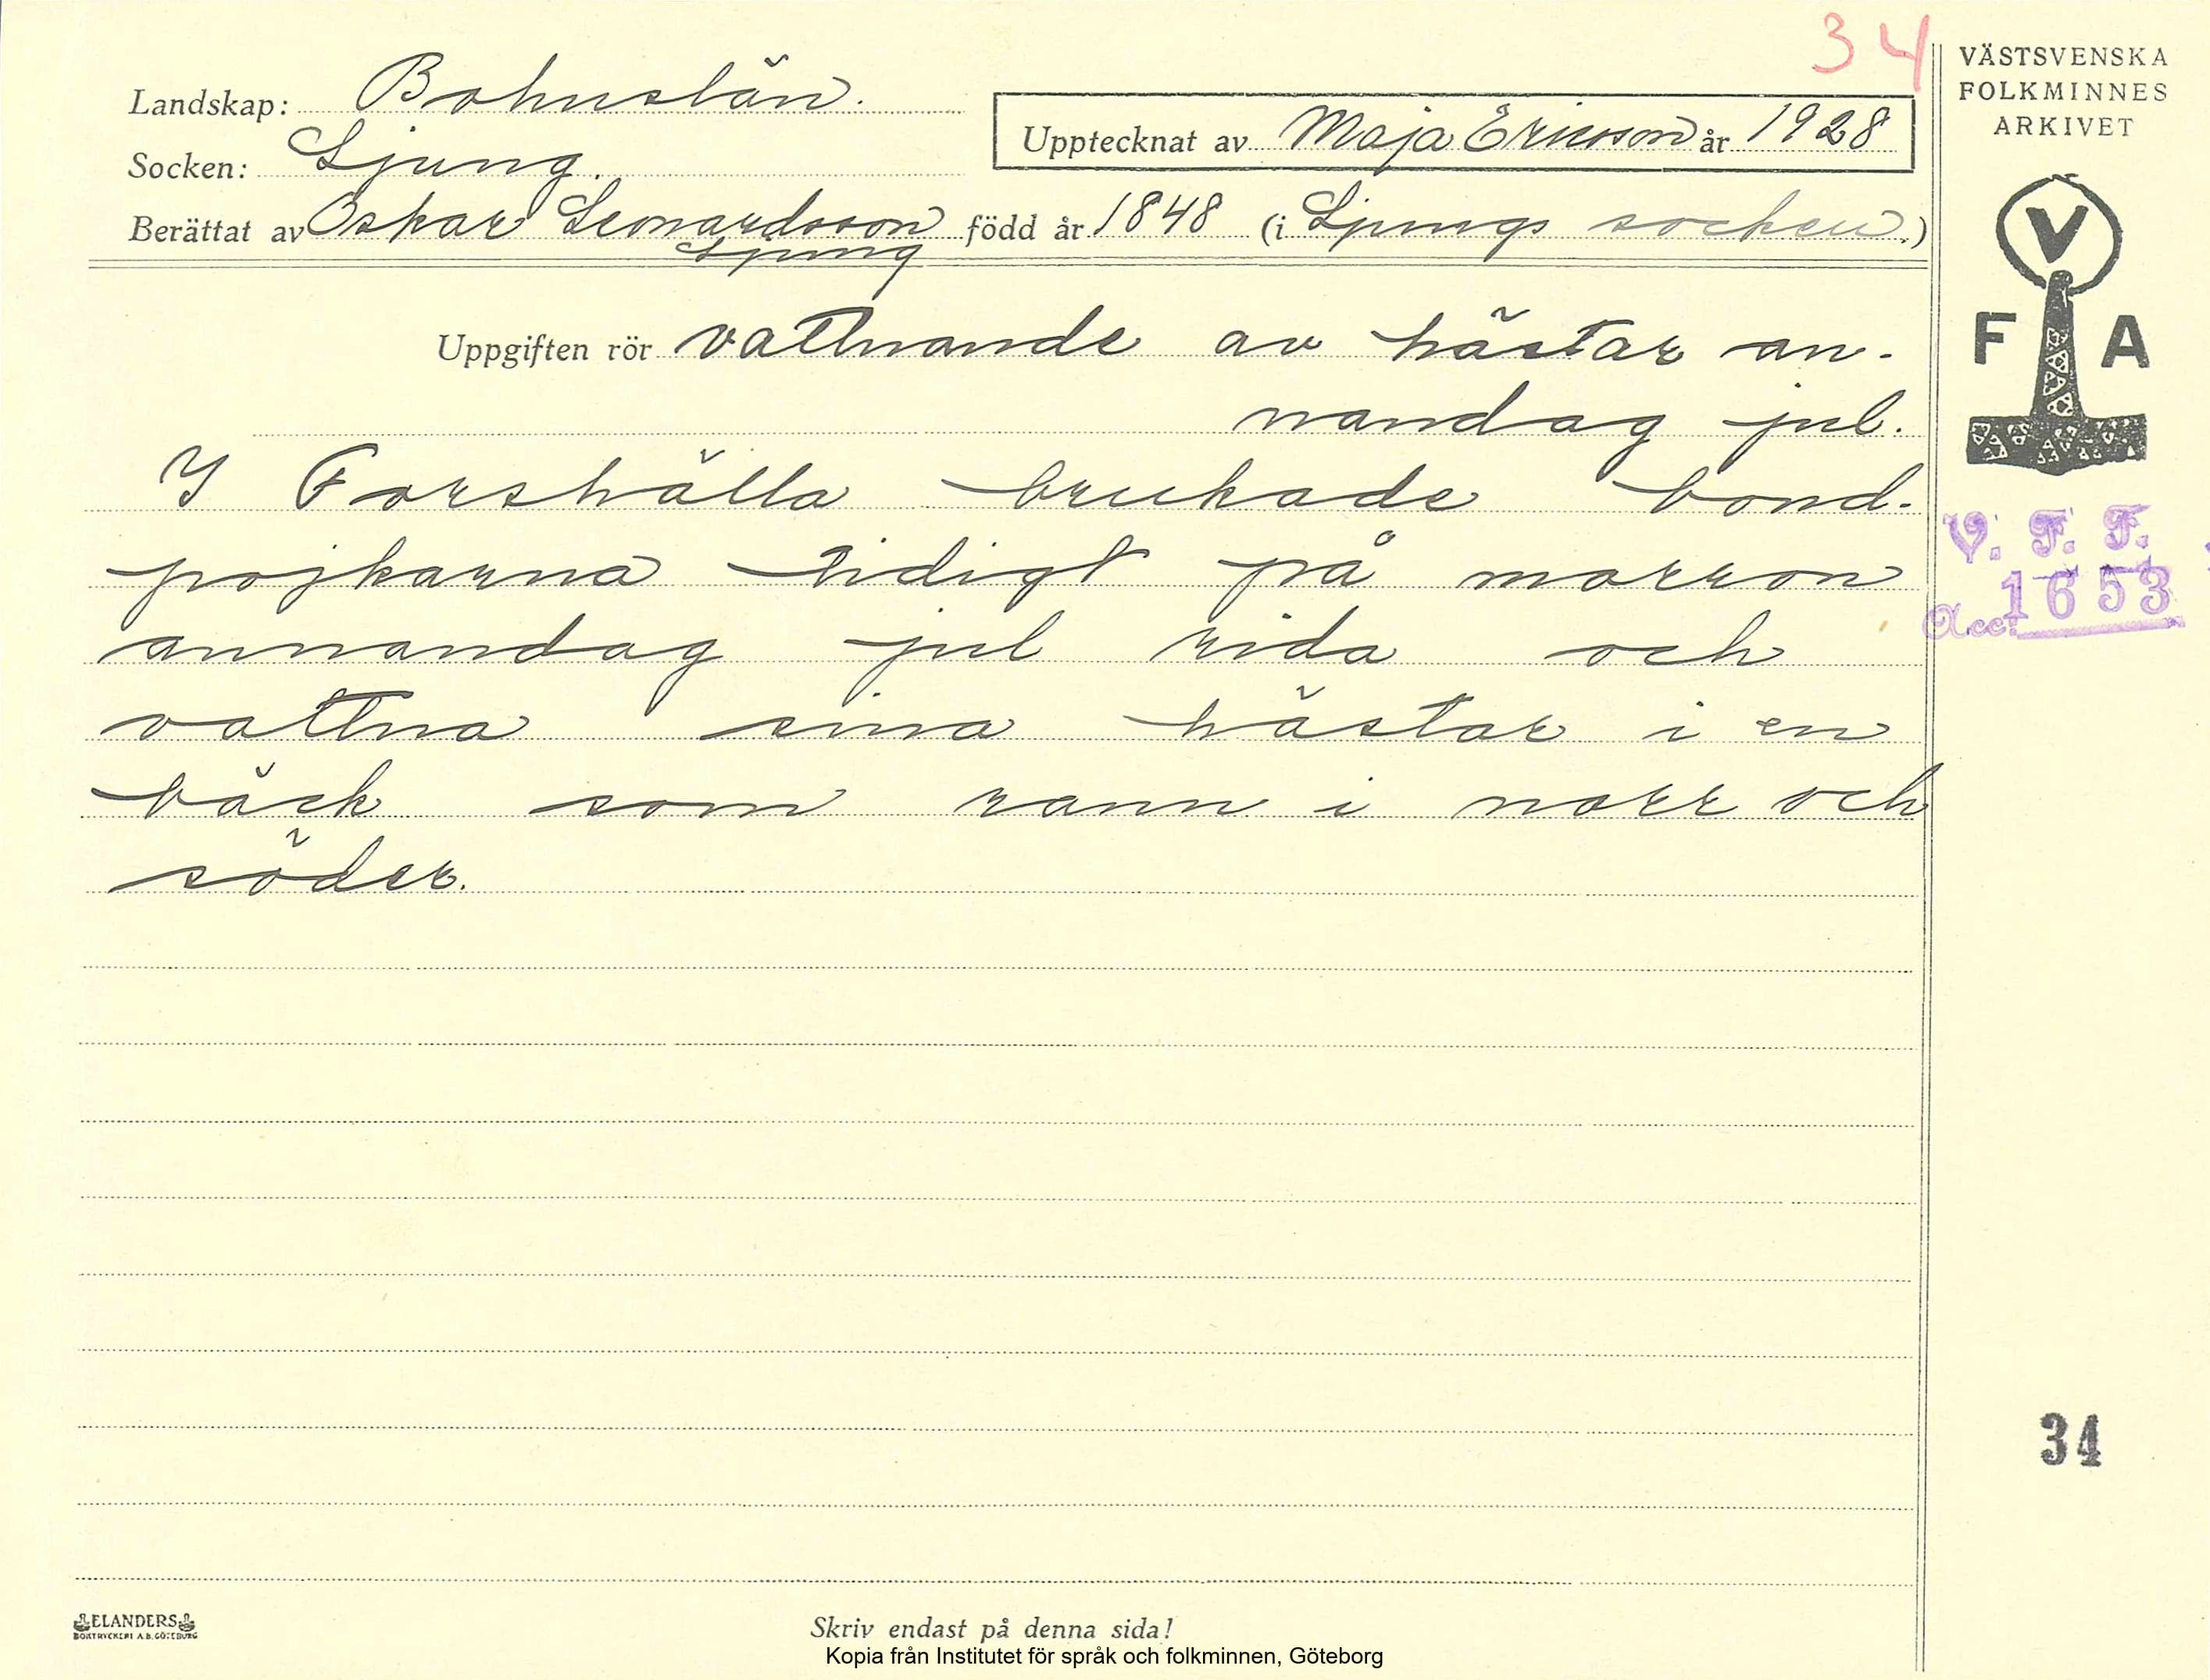 34
Landskap: Bohuslän.
Socken: Ljung.
Upptecknat av Maja Ericsson år 1928
Berättat av Oskar Leonardsson född år 1848 (i Ljungs socken.)
Ljung
Uppgiften rör vattnande av hästar an-
nandag jul.
I Forshälla brukade bond-
pojkarna tidigt på morron
annandag jul rida och
vattna sina hästar i en
bäck som rann i norr och
söder.
VÄSTSVENSKA
FOLKMINNES
ARKIVET
V
F A
V. F. F.
Acc. 1653
34
ELANDERS
BOKTRYCKERI A.B. GÖTEBORG
Skriv endast på denna sida!
Kopia från Institutet för språk och folkminnen, Göteborg